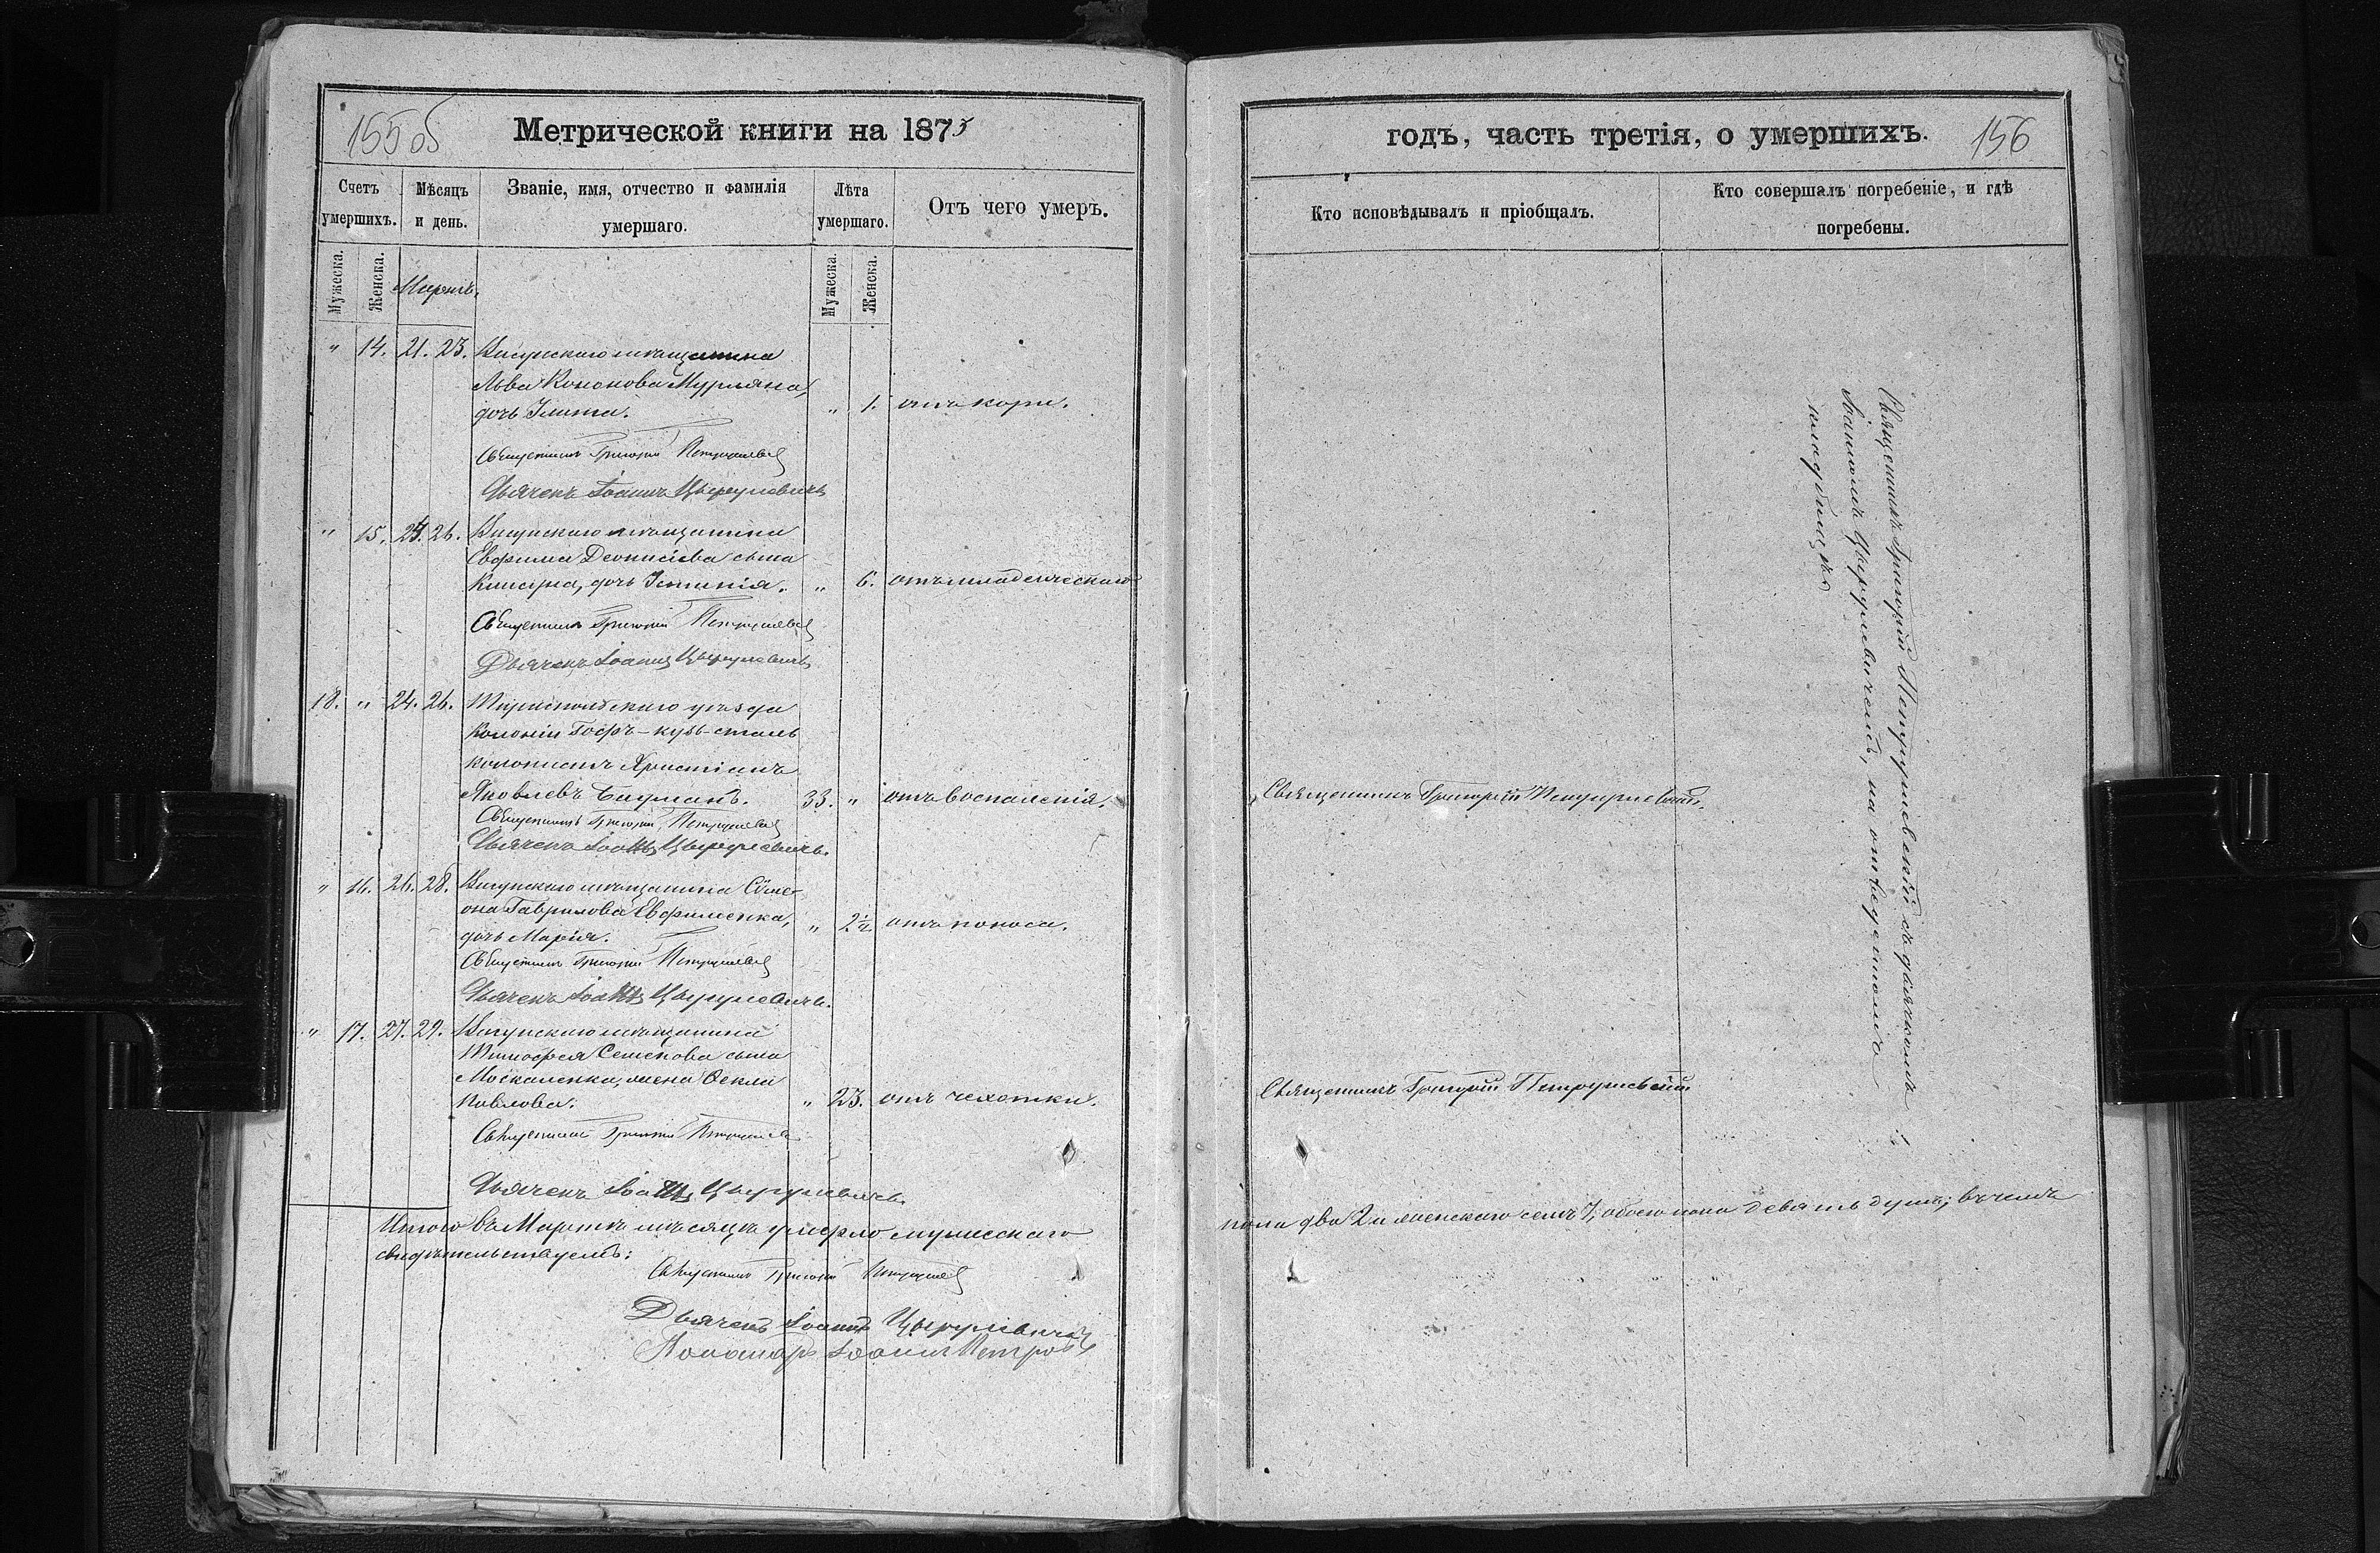 155 об
Метрической книги на 1875
Счетъ умершихъ.
Мѣсяцъ и день.
Званіе, имя, отчество и фамилія умершаго.
Лѣта умершаго.
Отъ чего умеръ.
Мужеска.
Женска.
Мартъ.
Мужеска.
Женска.
" 14. 21. 23. мѣщанина
Льва Кононова
дочь " 1. отъ кори.
Священникъ Григорій Петрушевскій
Дьячекъ Іоаннъ
" 15. 24. 26. мѣщанина
Евфима Деонисіева сына
дочь " 6. отъ младенческаго
Священникъ Григорій Петрушевскій
Дьячекъ Іоаннъ
18. " 24. 26. Тираспольскаго уѣзда
Колоніи
колонистъ Христіанъ
Яковлевъ Бауманъ. 33. " отъ воспаленія.
Священникъ Григорій Петрушевскій
Дьячекъ Іоаннъ
" 16. 26. 28. мѣщанина Симе-
она Гаврилова Евфименка,
дочь Марія. " 2½. отъ поноса.
Священникъ Григорій Петрушевскій
Дьячекъ Іоаннъ
" 17. 27. 29. мѣщанина
Тимофея Семенова сына
Москаленка, жена Ѳекла
Павлова. " 23. отъ чехотки.
Священникъ Григорій Петрушевскій
Дьячекъ Іоаннъ
Итого въ Мартѣ мѣсяцѣ умерло мужескаго
свидѣтельствуемъ:
Священникъ Григорій Петрушевскій
Дьячекъ Іоаннъ
Пономарь Іоаннъ Петровъ
годъ, часть третія, о умершихъ.
156
Кто исповѣдывалъ и пріобщалъ.
Кто совершалъ погребеніе, и гдѣ погребены.
Священникъ Григорій Петрушевскій съ дьячкомъ
Іоанномъ на отведенномъ
кладбищѣ
Священникъ Григорій Петрушевскій.
Священникъ Григорій Петрушевскій
пола два 2 и женскаго семь 7, обоего пола девять душъ; въ чемъ